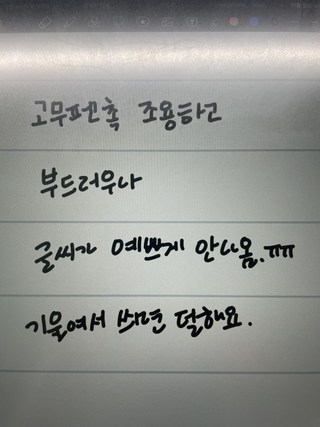 고무펜촉 조용하고
부드러우나
글씨가 예쁘게 안나옴.ㅠㅠ
기울여서 쓰면 덜해요.